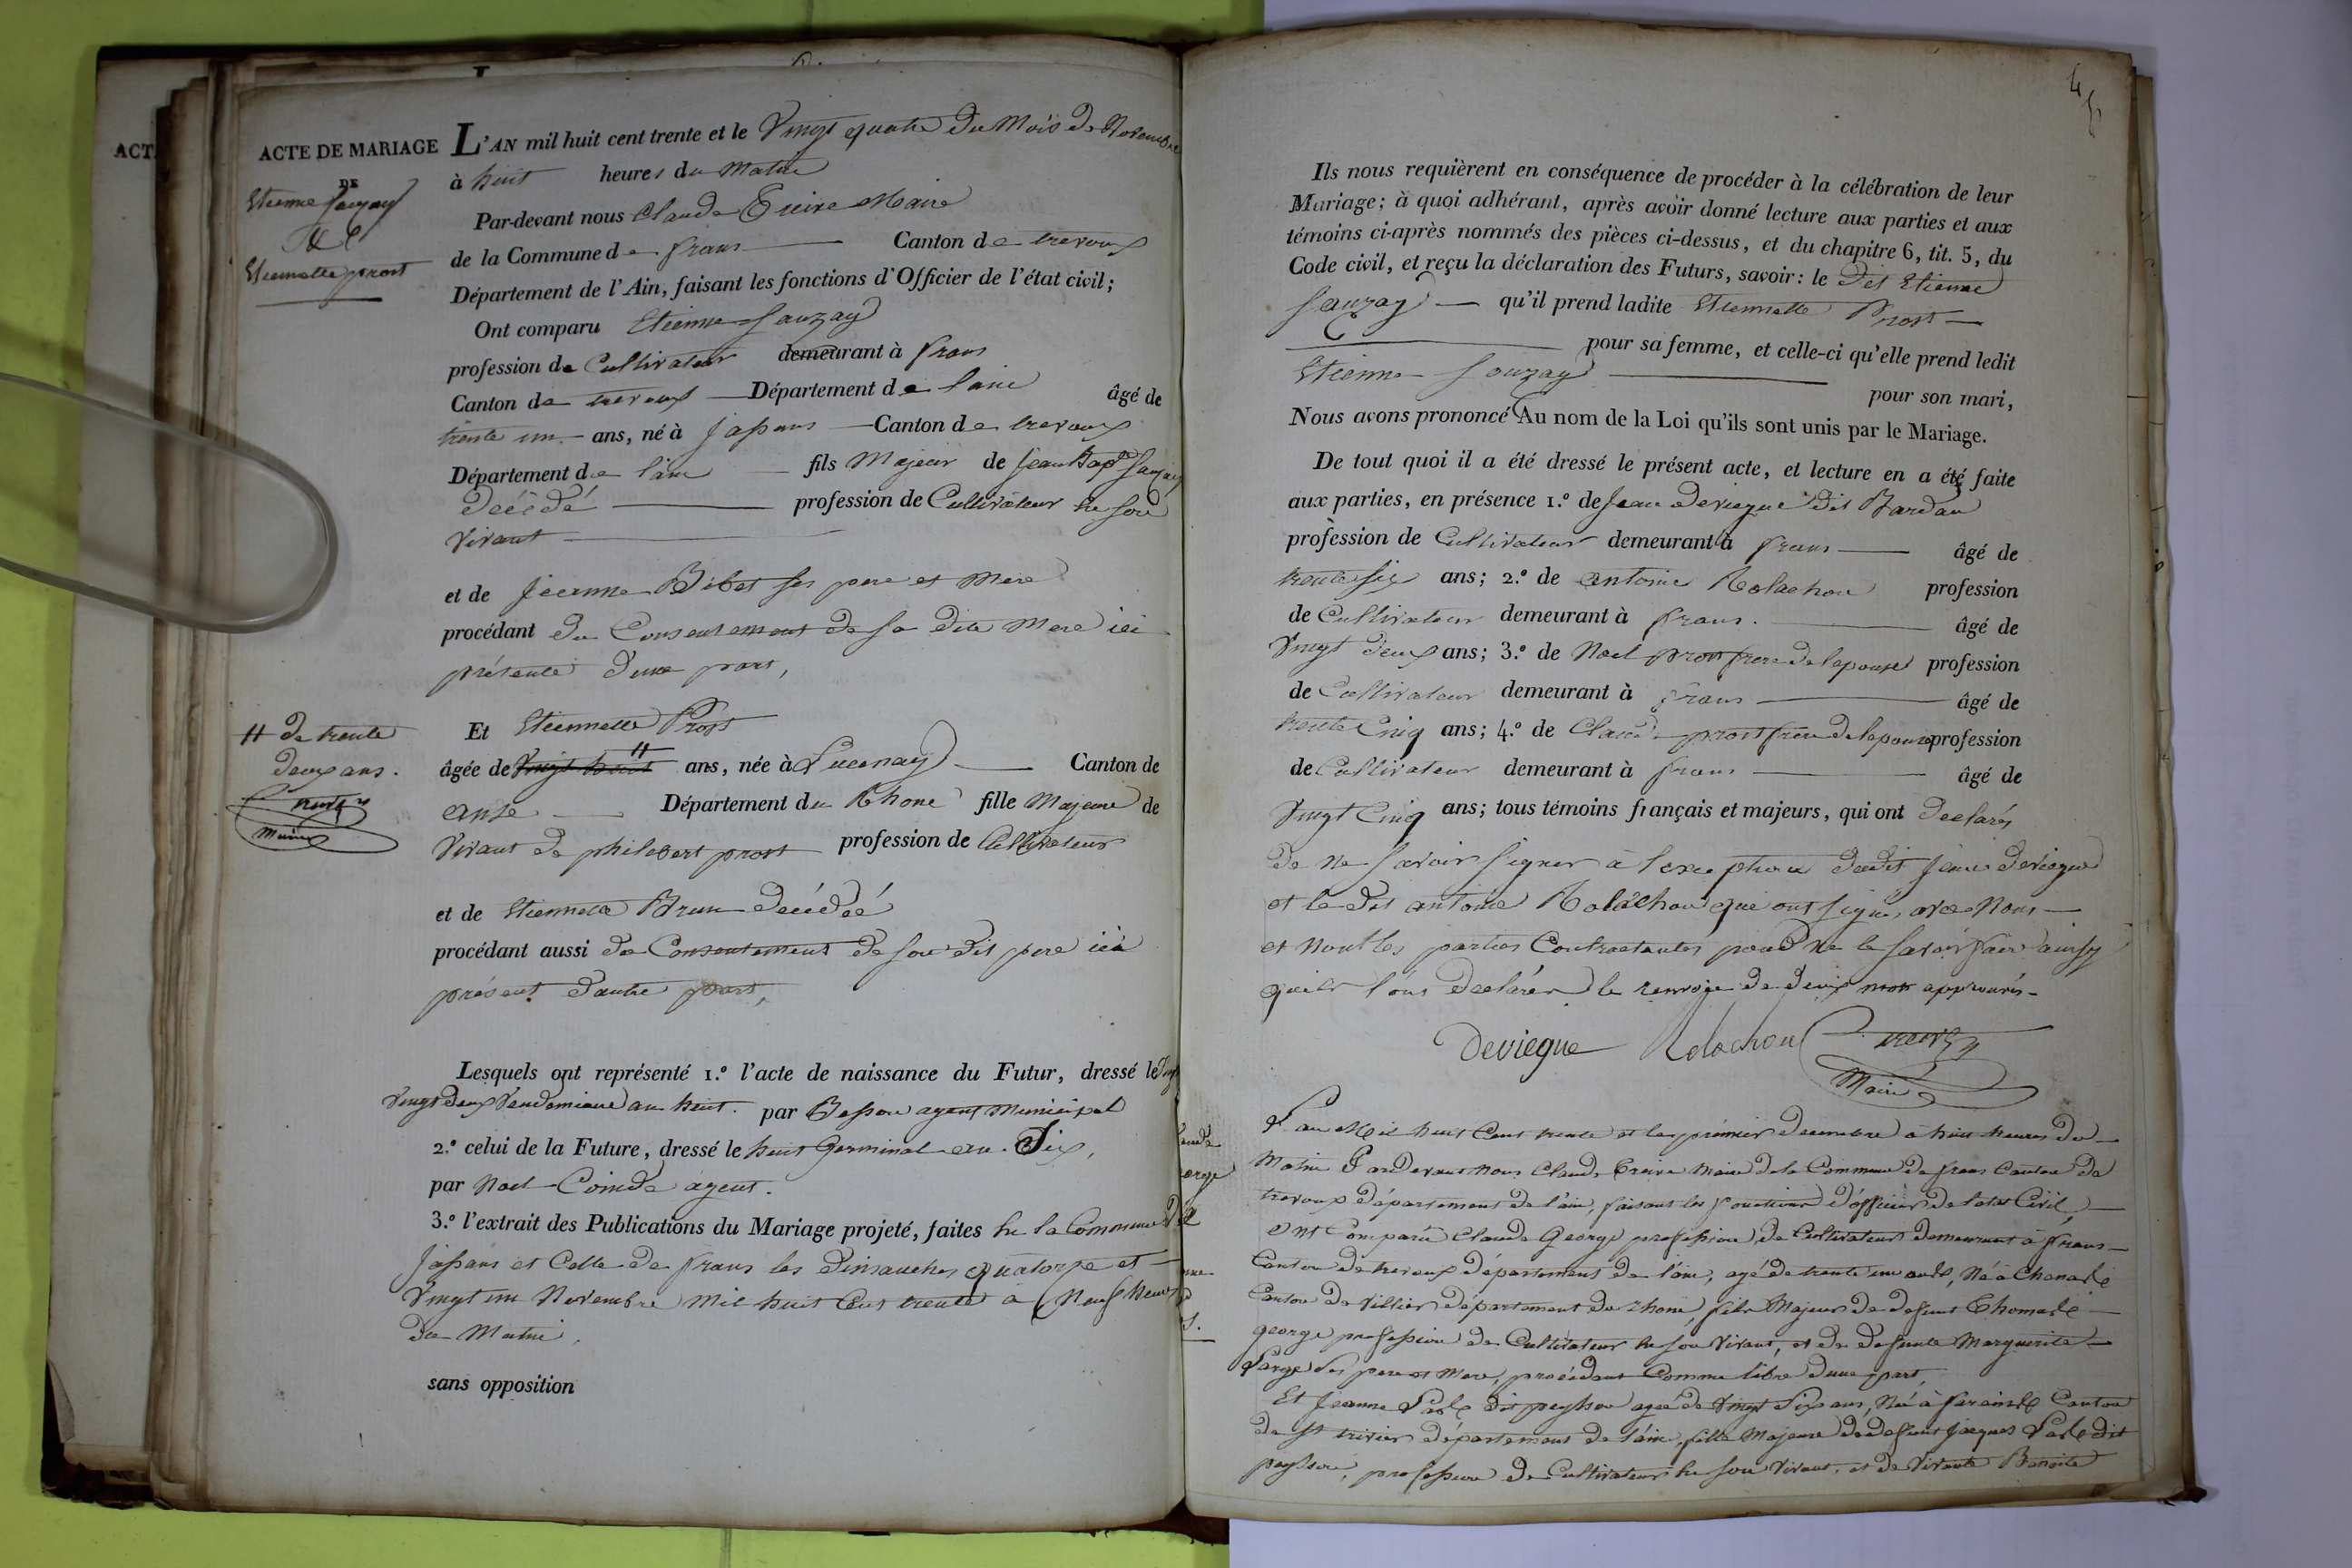 ACT
ACTE DE MARIAGE
DE
Etienne Sauzay
&
Etiennette prost
L'AN mil huit cent trente et le Vingt quatre du Mois de Novembre
à huit heures du Matin
Par-devant nous Claude Treive Maire
de la Commune de frans Canton de trevoux
Département de l'Ain, faisant les fonctions d'Officier de l'état civil;
Ont comparu Etienne Sauzay
profession de Cultivateur demeurant à frans
Canton de trevoux Département de lain âgé de
trente un ans, né à Jassans Canton de trevoux
Département de lain fils Majeur de Jean Bapte Sauzay
décédé profession de Cultivateur en son
vivant
et de Jeanne Bibet ses pere et mere
procédant du Consentement de sa dite mere ici
présente d'une part,
Et Etiennette Prost
# de trente
deux ans.
Treive
Maire
âgée de vingt huit # ans, née à Lucenay Canton de
anse Département du Rhone fille Majeure de
vivant de philibert prost profession de Cultivateur
et de Etiennette Brun décédeé
procédant aussi de Consentement de son dit pere ici
présent d'autre part,
Lesquels ont représenté 1.º l'acte de naissance du Futur, dressé le
Vingt deux Vendemiaire an huit. par Besson agent Municipal
2.º celui de la Future, dressé le huit Germinal an Six,
par Noel Coinde agent.
3.º l'extrait des Publications du Mariage projeté, faites en la Commune de
Jassans et Celle de frans les dimanches quatorze et
Vingt un Novembre Mil huit Cent trente a Neuf heures
du Matin,
sans opposition
Ils nous requièrent en conséquence de procéder à la célébration de leur
Mariage; à quoi adhérant, après avoir donné lecture aux parties et aux
témoins ci-après nommés des pièces ci-dessus, et du chapitre 6, tit. 5, du
Code civil, et reçu la déclaration des Futurs, savoir: le dit Etienne
Sauzay qu'il prend ladite Etiennette Prost
pour sa femme, et celle-ci qu'elle prend ledit
Etienne Sauzay pour son mari,
Nous avons prononcé Au nom de la Loi qu'ils sont unis par le Mariage.
De tout quoi il a été dressé le présent acte, et lecture en a été faite
aux parties, en présence 1.º de Jean deviegue dit Bardan
profession de Cultivateur demeurant à frans âgé de
trente six ans; 2.º de antoine Rolachon profession
de Cultivateur demeurant à frans. âgé de
Vingt deux ans; 3.º de Noel prost frere de lepouse profession
de Cultivateur demeurant à frans âgé de
trente Cinq ans; 4.º de Claude prost frere de lepouse profession
de Cultivateur demeurant à frans âgé de
Vingt Cinq ans; tous témoins français et majeurs, qui ont declarés
de ne savoir signer à l'exception dudit Jean deviegue
et le dit antoine Rolachon qui ont signé avec Nous
et non les parties Contractantes pour ne le savoir faire ainsy
quils l'ons declarés le renvoie de deux mots approuvés
Deviegue Rolachon Treive
Maire
L'an Mil huit Cent trente et le premier decembre à huit heures du
Matin Pardevant Nous Claude Treive Maire de la Commune de frans Canton de
trevoux département de l'ain, faisant les fonctions d'officier de l'état Civil,
ont Comparu Claude George profession de Cultivateur demeurant à frans
Canton de trevoux département de l'ain, agé de trente un ans, Né à
Canton de département du rhone, fils Majeur de defunt
george profession de Cultivateur en son vivant, et de defunte Marguerite
Large Ses pere et Mere, procédant Comme libre d'une part,
Et Jeanne dit agée de Vingt Six ans, Née à fareins Canton
de St trivier département de l'ain, fille Majeure de defunt Jacques dit
profession de Cultivateur en son vivant, et de vivante Benoite